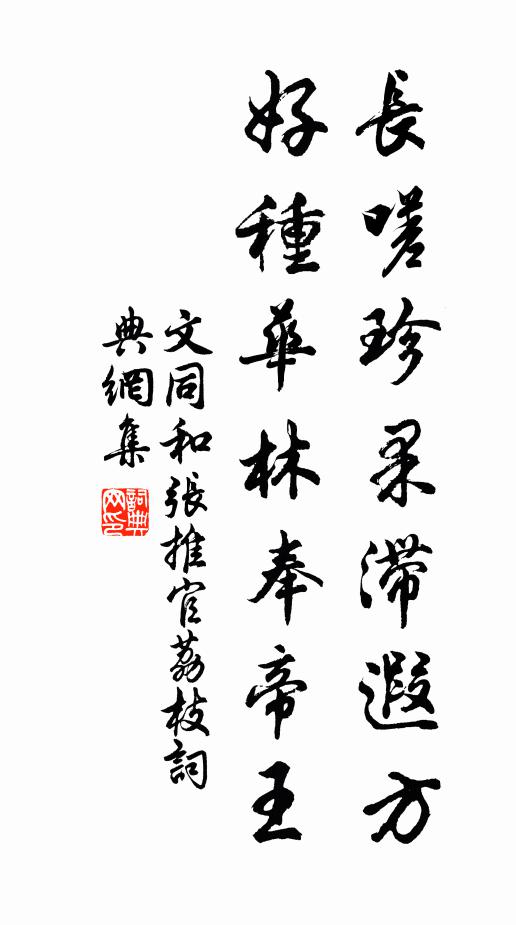 長嗟珍果滯遐方
好種華林奉帝王
文同和張推官荔枝詞
典網集
詞典網印